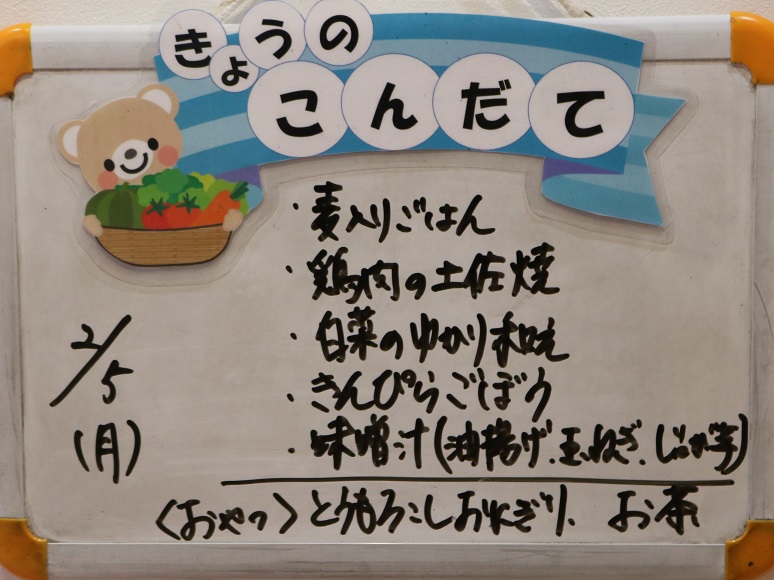 きょうの
こんだて
・麦入りごはん
・鶏肉の土佐焼
・白菜のゆかり和え
・きんぴらごぼう
・味噌汁(油揚げ、玉ねぎ、じゃが芋)
2/5
(月)
〈おやつ〉とうもろこしおにぎり、お茶